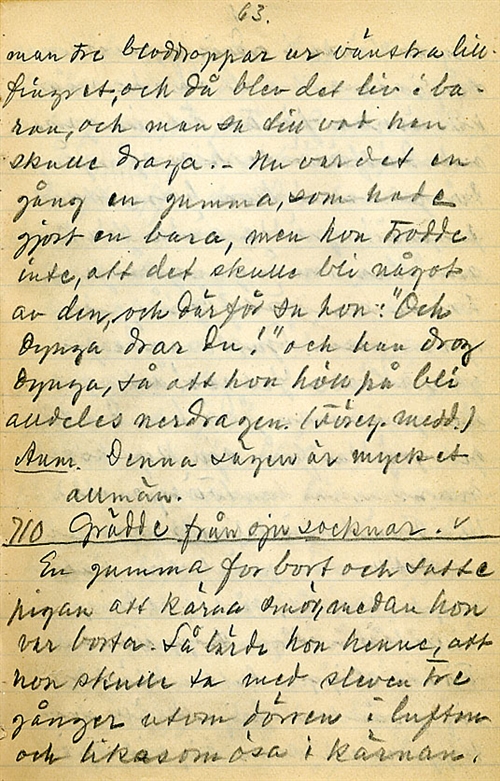 63.
man tre bloddroppar ur vänstra lill-
fingret, och då blev det liv i ba-
ran, och man sa till vad han
skulle draga. - Nu var det en
gång en gumma, som hade
gjort en bara, men hon trodde
inte, att det skulle bli något
av den, och därför sa hon: "Och
dynga drar du!" och han drog
dynga, så att hon höll på bli
alldeles nerdragen. (Föreg. medd.)
Anm. Denna sägen är mycket
allmän.
710 Grädde från sju socknar. v
En gumma for bort och satte
pigan att kärna smör, medan hon
var borta. Så lärde hon henne, att
hon skulle ta med sleven tre
gånger utom dörren i luften
och likasom ösa i kärnan.